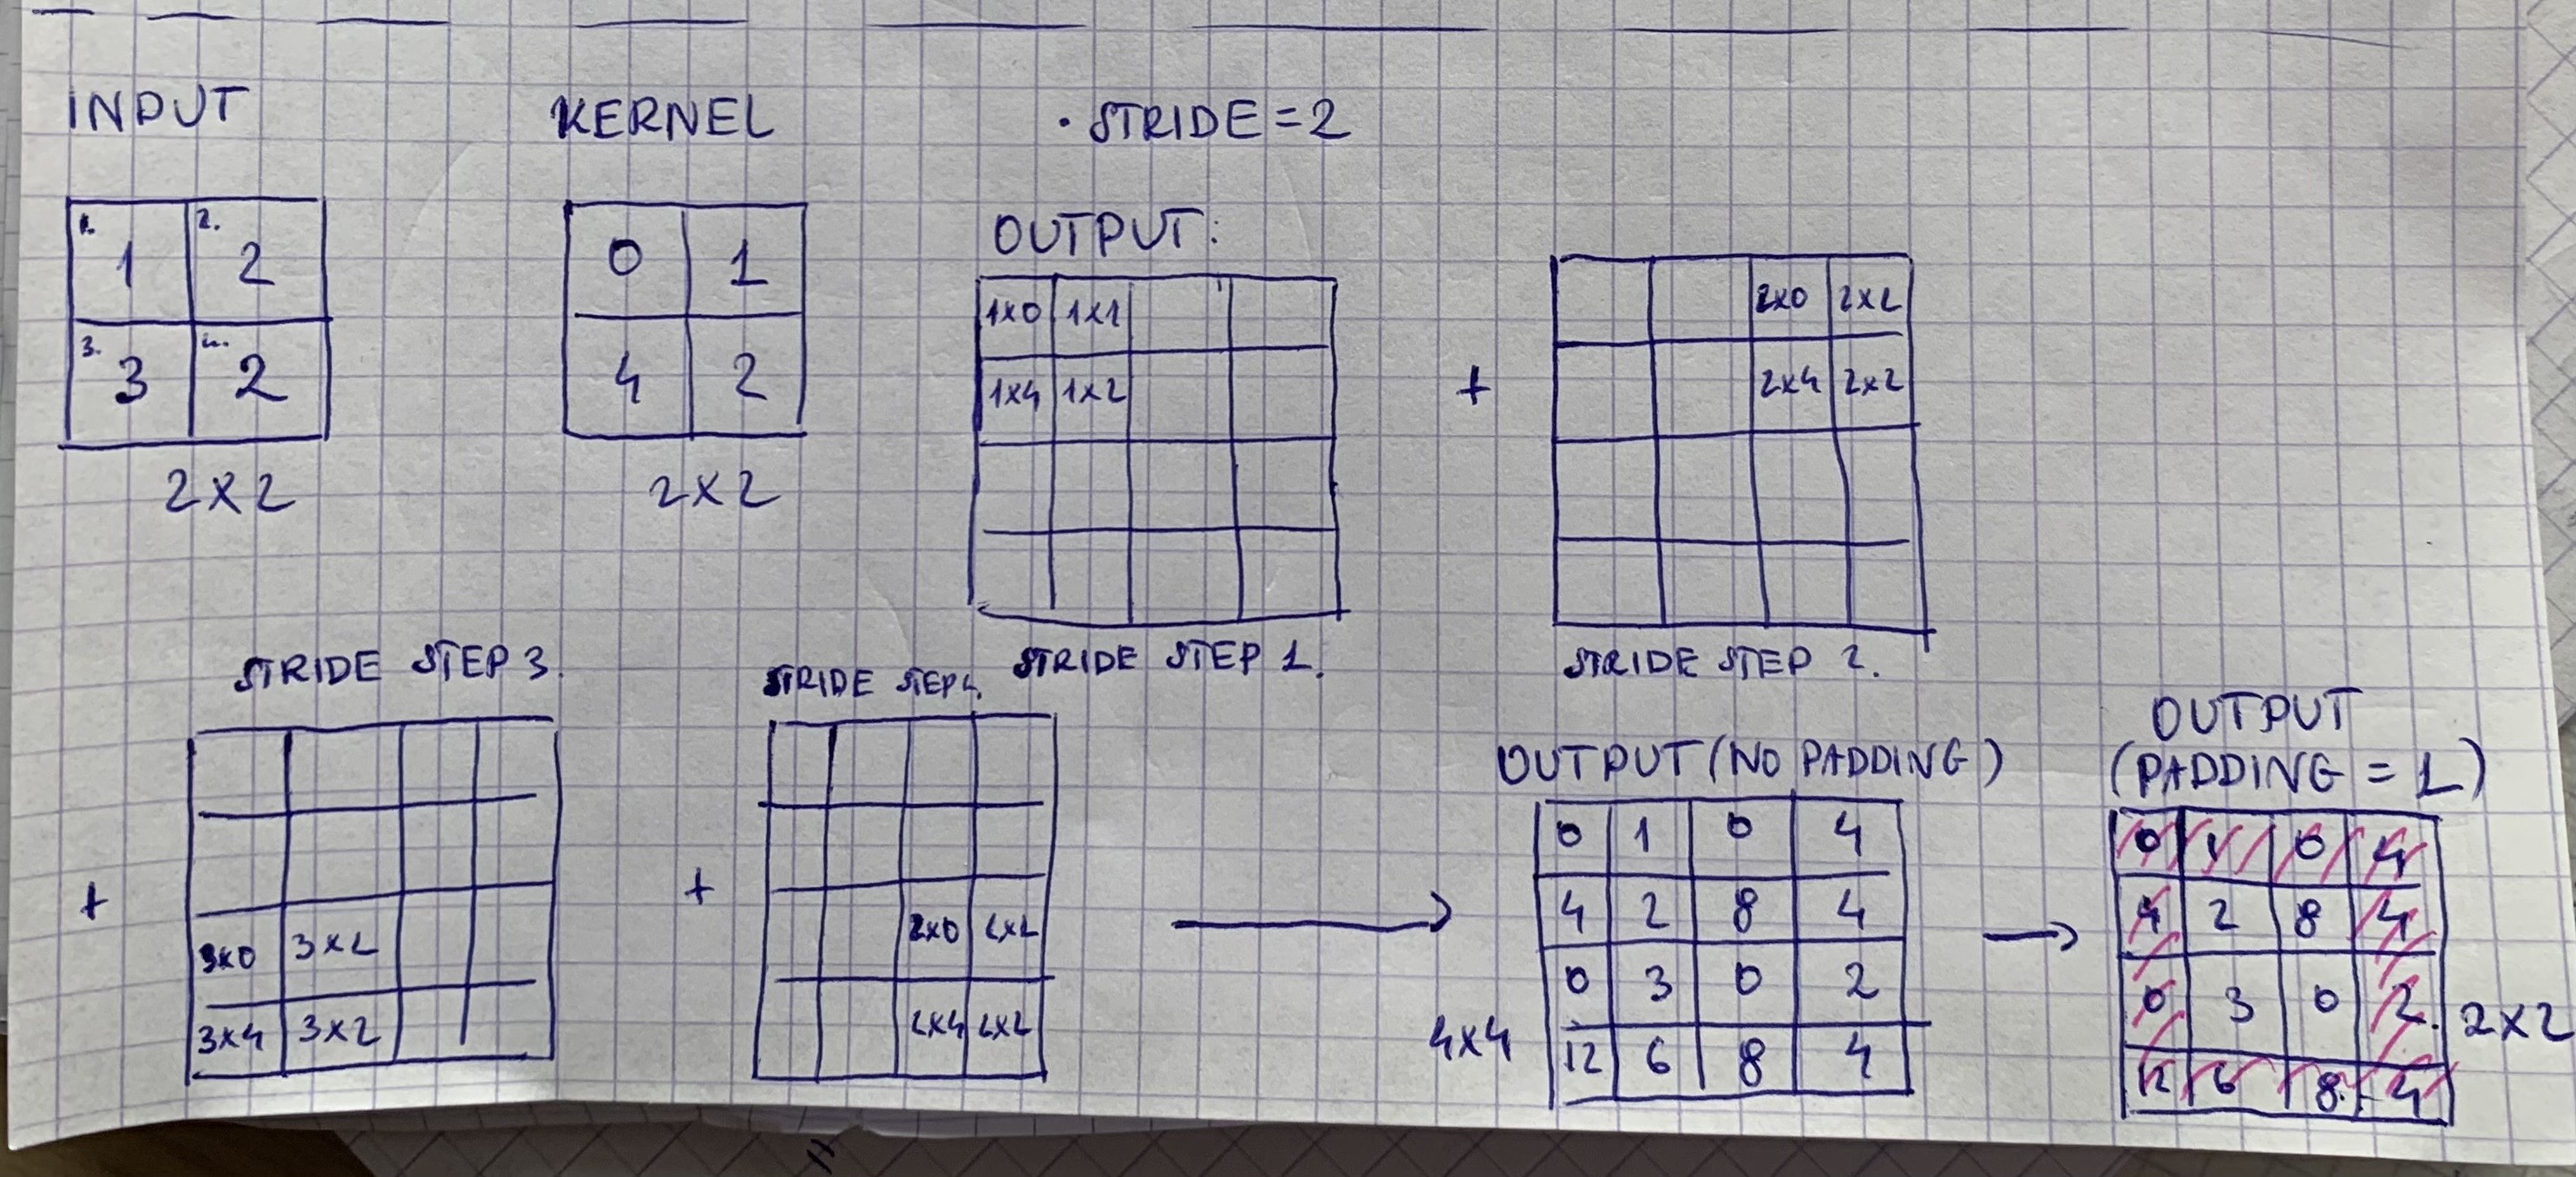 INPUT
KERNEL
• STRIDE = 2
1. 1 2. 2
3. 3 4. 2
2 x 2
0 1
4 2
2 x 2
OUTPUT:
1x0 1x1
1x4 1x2
STRIDE STEP 1.
+
2x0 2x1
2x4 2x2
STRIDE STEP 2.
STRIDE STEP 3.
+
3x0 3x1
3x4 3x2
STRIDE STEP 4.
+
2x0 2x1
2x4 2x2
OUTPUT (NO PADDING)
0 1 0 4
4 2 8 4
0 3 0 2
12 6 8 4
4x4
OUTPUT
(PADDING = 1)
0 1 0 4
4 2 8 4
0 3 0 2
12 6 8 4
2x2